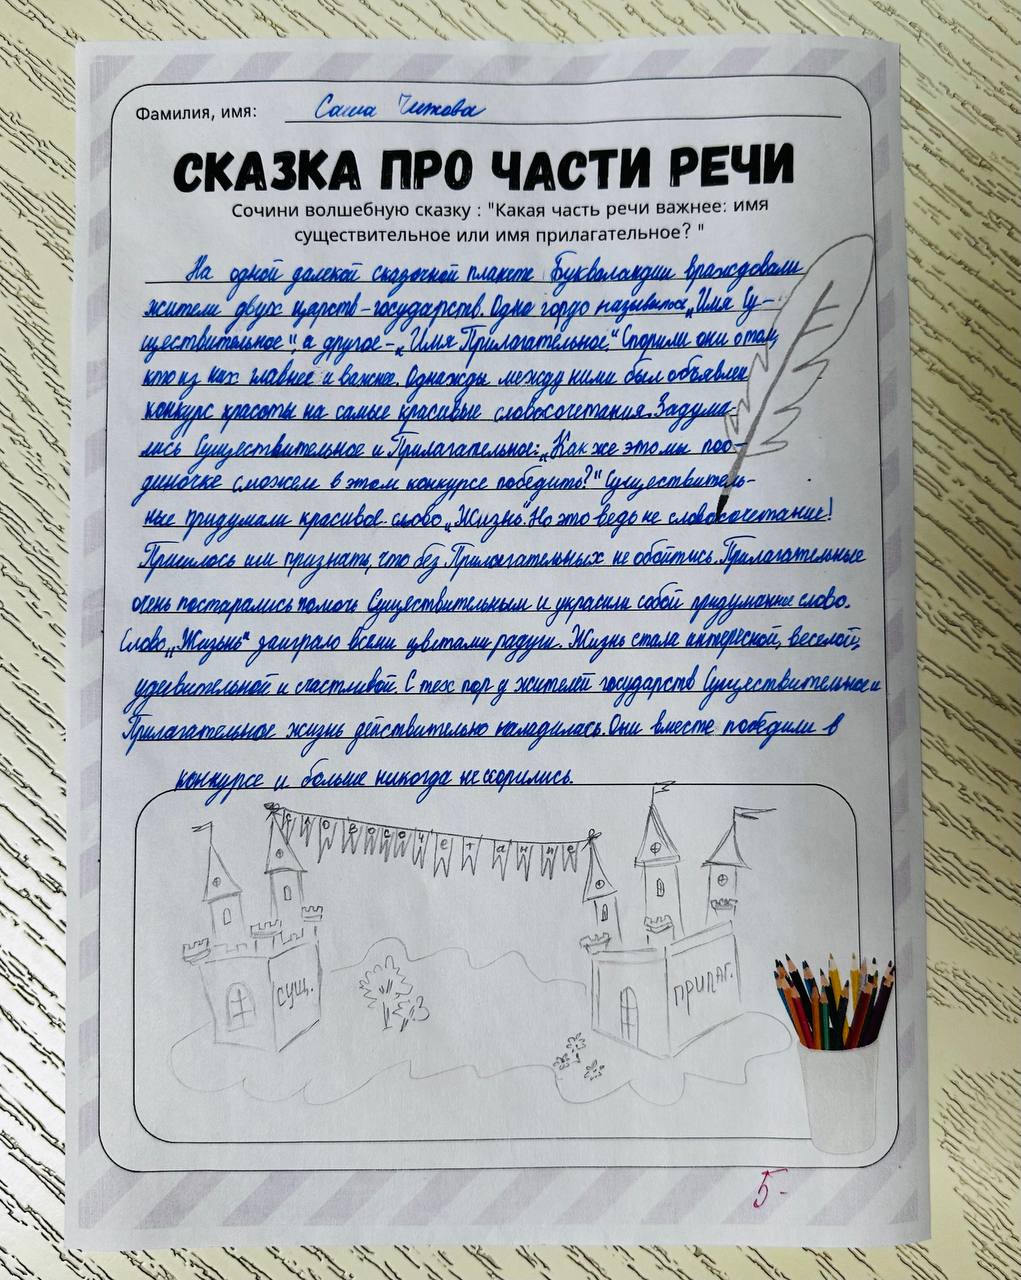 Фамилия, имя: Саша Чижова
СКАЗКА ПРО ЧАСТИ РЕЧИ
Сочини волшебную сказку : "Какая часть речи важнее: имя
существительное или имя прилагательное? "
На одной далекой сказочной планете Букволандии враждовали
жители двух царств-государств. Одно гордо называлось „Имя Су-
ществительное“, а другое – „Имя Прилагательное.“ Спорили они о том,
кто из них главнее и важнее. Однажды между ними был объявлен
конкурс красоты на самые красивые словосочетания. Задума-
лись Существительное и Прилагательное: „Как же это мы поо-
диночке сможем в этом конкурсе победить?“ Существитель-
ные придумали красивое слово „Жизнь“. Но это ведь не словосочетание!
Пришлось им признать, что без Прилагательных не обойтись. Прилагательные
очень постарались помочь Существительным и украсили собой придуманное слово.
Слово „Жизнь“ заиграло всеми цветами радуги. Жизнь стала интересной, веселой,
удивительной и счастливой. С тех пор у жителей государств Существительное и
Прилагательное жизнь действительно наладилась. Они вместе победили в
конкурсе и больше никогда не ссорились.
СЛОВОСОЧЕТАНИЕ
СУЩ.
ПРИЛАГ.
5-